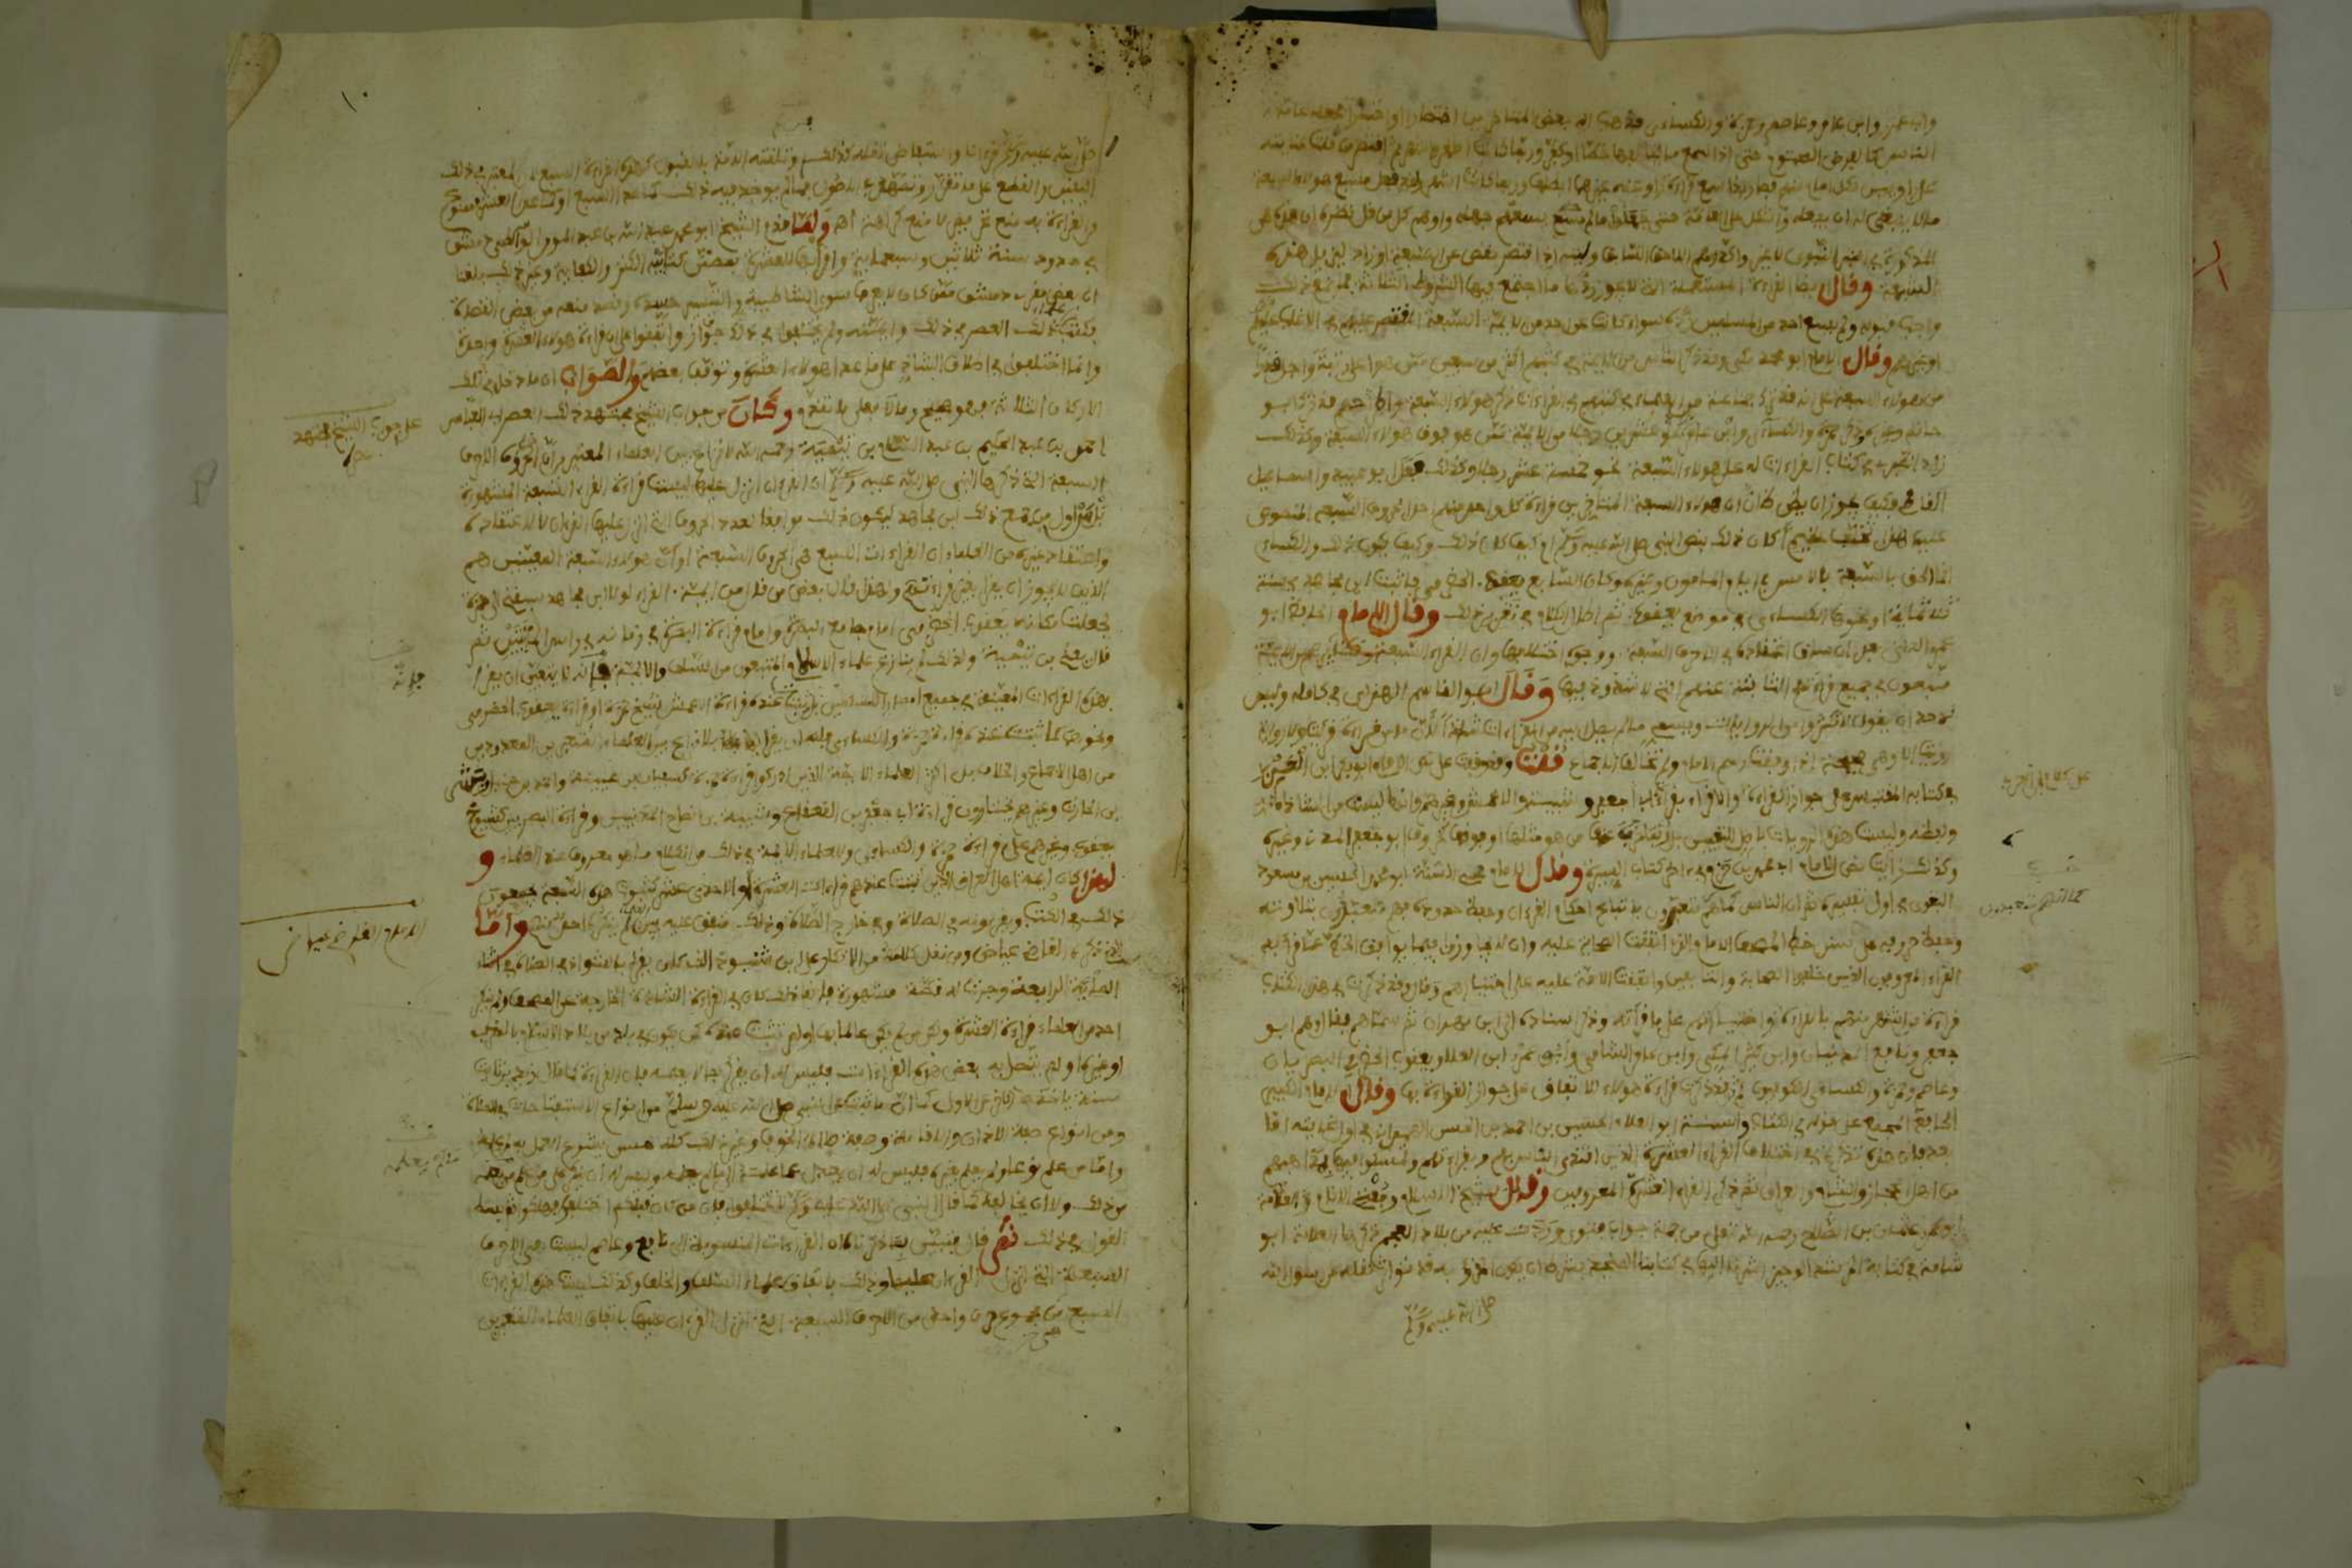 وابي عمرو وابن عامر وعاصم وحمزة والكسائي فذهب اليه بعض المتاخرين اختصارا واختيارا فجعله عامة
الناس كالفرض المحتوم حتى اذا سمع ما يخالفها خطأ او كفر وربما كانت اظهر واشهر ثم اقتصر من قلت عنايته
على راويين لكل امام منهم فصار اذا سمع قراءة راو عنه غيرهما ابطلها وربما كانت اشهر ولقد فعل مسبع هؤلاء السبعة
ما لا ينبغي له ان يفعله واشكل على العامة حتى جهلوا ما لم يسعهم جهله واوهم كل من قل نظره ان هذه هي
المذكورة في الخبر النبوي لا غير واكد وهم اللاحق السابق وليته اذ اقتصر نقص عن السبعة او زاد ليزيل هذه
الشبهة وقال ايضا القراءة المستعملة التي لا يجوز ردها ما اجتمع فيها الشروط الثلاثة فما جمع ذلك
وجب قبوله ولم يسع احد من المسلمين رده سواء كانت عن احد من الائمة السبعة المقتصر عليهم في الاغلب
او غيرهم وقال الامام ابو محمد مكي وقد ذكر الناس من الائمة في كتبهم اكثر من سبعين ممن هو اعلى رتبة واجل قدرا
من هؤلاء السبعة على انه قد ترك جماعة من العلماء في كتبهم في القراءات ذكر هؤلاء السبعة واطرحهم قد ترك ابو
حاتم وغيره ذكر حمزة والكسائي وابن عامر وزاد نحو عشرين رجلا من الائمة ممن هو فوق هؤلاء السبعة وكذلك
زاد الطبري في كتاب القراءات له على هؤلاء السبعة نحو خمسة عشر رجلا وكذلك فعل ابو عبيد واسماعيل
القاضي فكيف يجوز ان يظن ظان ان هؤلاء السبعة المتاخرين قراءة كل واحد منهم احد الحروف السبعة المنصوص
عليها هذا تخلف عظيم أكان ذلك بنص النبي صلى الله عليه وسلم ام كيف كان ذلك وكيف يكون ذلك والكسائي
انما الحق بالسبعة بالامس في ايام المامون وغيره وكان السابع يعقوب الحضرمي فاثبت ابن مجاهد في سنة
ثلاثمائة او نحوها الكسائي في موضع يعقوب ثم اطال الكلام في تقرير ذلك وقال الامام الحافظ ابو
عمرو الداني بعد ان ساق اعتقاده في الاحرف السبعة ووجوه اختلافها وان القراء السبعة ونظائرهم من الائمة
متبعون في جميع قراءتهم الثابتة عنهم التي لا شذوذ فيها وقال ابو القاسم الهذلي في كامله وليس
لاحد ان يقول لا تكثروا من الروايات ويسمي ما لم يصل اليه من القراءات شاذا لان ما من قراءة قرئت ولا رواية
رويت الا وهي صحيحة اذا وافقت رسم الامام ولم تخالف الاجماع قلت وقد وقفت على نص الامام ابي بكر ابن العربي
في كتابه القبس على جواز القراءة والاقراء بقراءة ابي جعفر وشيبة والاعمش وغيرهم وانها ليست من الشاذة
ولفظه وليست هذه الروايات باصل للتعيين بل ربما خرج عنها ما هو مثلها او فوقها كحروف ابي جعفر المدني وغيره
وكذلك رايت نص الامام ابي محمد بن حزم في اخر كتاب السيرة وقال الامام محيي السنة ابو محمد الحسين بن مسعود
البغوي في اول تفسيره ثم ان الناس كما انهم متعبدون باتباع احكام القرءان وحفظ حدوده فهم متعبدون بتلاوته
وحفظ حروفه على سنن خط المصحف الامام الذي اتفقت الصحابة عليه وان لا يجاوز فيما يوافق الخط عما قرأ به
القراء المعروفون الذين خلفوا الصحابة والتابعين واتفقت الامة على اختيارهم وقال وقد ذكرت في هذا الكتاب
قراءة من اشتهر منهم بالقراءة واختياراتهم على ما قرأته وذكر اسناده الى ابن مهران ثم سماهم فقال وهم ابو
جعفر ونافع المدنيان وابن كثير المكي وابن عامر الشامي وابو عمرو ابن العلاء ويعقوب الحضرمي البصريان
وعاصم وحمزة والكسائي الكوفيون ثم قال فذكرت قراءة هؤلاء للاتفاق على جواز القراءة بها وقال الامام الكبير
الحافظ المجمع على قوله في الكتاب والسنة ابو العلاء الحسن بن احمد بن الحسن الهمذاني في اول غايته اما
بعد فان هذه تذكرة في اختلاف القراء العشرة الذين اقتدى الناس بقراءتهم وتمسكوا فيها بمذاهبهم
من اهل الحجاز والشام والعراق ثم ذكر القراء العشرة المعروفين وقال شيخ الاسلام ومفتي الانام العلامة
ابو عمرو عثمان بن الصلاح رحمه الله تعالى من جملة جواب فتوى وردت عليه من بلاد العجم ذكرها العلامة ابو
شامة في كتابه المرشد الوجيز اشرنا اليها في كتابنا المنجد يشترط ان يكون المقروء به قد تواتر نقله عن رسول الله
صلى الله عليه وسلم
١٠
صلى الله عليه وسلم قرءانا واستفاض نقله كذلك وتلقته الامة بالقبول كهذه القراءات السبع لان المعتبر في ذلك
اليقين والقطع على ما تقرر وتمهد في الاصول فما لم يوجد فيه ذلك كما عدا السبع او كما عدا العشر فممنوع
من القراءة به منع تحريم لا منع كراهة اهـ ولما قدم الشيخ ابو محمد عبد الله بن عبد المومن الواسطي دمشق
في حدود سنة ثلاثين وسبعماية واقرا بها للعشرة بمضمن كتابيه الكنز والكفاية وغير ذلك بلغنا
ان بعض مقرئي دمشق ممن كان لا يعرف سوى الشاطبية والتيسير حسده وقصد منعه من بعض القضاة
فكتب علماء ذلك العصر في ذلك وايمته ولم يختلفوا في جواز ذلك واتفقوا على ان قراءة هؤلاء العشرة واحدة
وانما اختلفوا في اطلاق الشاذ على ما عدا هؤلاء العشرة وتوقف بعضهم والصواب ان ما دخل في تلك
الاركان الثلاثة فهو صحيح وما لا فعلى ما تقدم وكان من جواب الشيخ مجتهد ذلك العصر ابي العباس
احمد بن عبد الحليم بن عبد السلام بن تيمية رحمه الله لا نزاع بين العلماء المعتبرين ان الاحرف
السبعة التي ذكرها النبي صلى الله عليه وسلم ان القرءان انزل عليها ليست قراءات القراء السبعة المشهورة
بل اول من جمع ذلك ابن مجاهد ليكون ذلك موافقا لعدد الحروف التي انزل عليها القرءان لا لاعتقاده
واعتقاد غيره من العلماء ان القراءات السبع هي الحروف السبعة او ان هؤلاء السبعة المعينين هم
الذين لا يجوز ان يقرا بغير قراءتهم ولهذا قال بعض من قال من ايمة القراء لولا ان ابن مجاهد سبقني الى حمزة
لجعلت مكانه يعقوب الحضرمي امام جامع البصرة وامام قراءة البصرة في زمانه في راس المائتين ثم
قال يعني بن تيمية ولذلك لم يتنازع علماء الاسلام المتبعون من السلف والايمة في انه لا يتعين ان يقرا
بهذه القراءات المعينة في جميع امصار المسلمين بل من ثبتت عنده قراءة الاعمش شيخ حمزة او قراءة يعقوب الحضرمي
ونحوهما كما ثبتت عنده قراءة حمزة والكسائي فله ان يقرا بها بلا نزاع بين العلماء المعتبرين المعدودين
من اهل الاجماع والخلاف بل اكثر العلماء الايمة الذين ادركوا قراءة حمزة كسفيان بن عيينة واحمد بن حنبل وبشر
بن الحارث وغيرهم يختارون قراءة ابي جعفر بن القعقاع وشيبة بن نصاح المدنيين وقراءة البصريين كشيوخ
يعقوب وغيرهم على قراءة حمزة والكسائي وللعلماء الايمة في ذلك من الكلام ما هو معروف عند العلماء و
لهذا كان ايمة اهل العراق الذين ثبتت عندهم قراءات العشرة او الاحد عشر كثبوت هذه السبعة يجمعون
ذلك في الكتب ويقرءونه في الصلاة وفي خارج الصلاة وذلك متفق عليه بين العلماء لم ينكره احد منهم واما
الذي ذكره القاضي عياض ومن نقل كلامه من الانكار على بن شنبوذ الذي كان يقرا بالشواذ في الصلاة في اثناء
الماية الرابعة وجرت له قصة مشهورة فانما ذلك كان في القراءات الشاذة الخارجة عن المصحف ولم ينكر
احد من العلماء قراءة العشرة ولكن من لم يكن عالما بها او لم تثبت عنده كمن يكون في بلد من بلاد الاسلام بالمغرب
او غيره او لم يتصل به بعض هذه القراءات فليس له ان يقرا بما لا يعلمه فان القراءة كما قال زيد بن ثابت
سنة ياخذها الاخر عن الاول كما ان ما ثبت عن النبي صلى الله عليه وسلم من انواع الاستفتاحات في الصلاة
ومن انواع صفة الاذان والاقامة وصفة صلاة الخوف وغير ذلك كله حسن يشرع العمل به لمن علمه
واما من علم نوعا ولم يعلم بغيره فليس له ان يعدل عما علمه الى ما لم يعلمه وليس له ان ينكر على من علم ما لم يعلمه
من ذلك ولا ان يخالفه كما قال النبي صلى الله عليه وسلم لا تختلفوا فان من كان قبلكم اختلفوا فهلكوا ثم بسط
القول في ذلك ثم قال فتبين بما ذكرناه ان القراءات المنسوبة الى نافع وعاصم ليست هي الاحرف
السبعة التي انزل القرءان عليها وذلك باتفاق علماء السلف والخلف وكذلك ليست هذه القراءات
السبع هي مجموع حرف واحد من الاحرف السبعة التي انزل القرءان عليها باتفاق العلماء المعتبرين